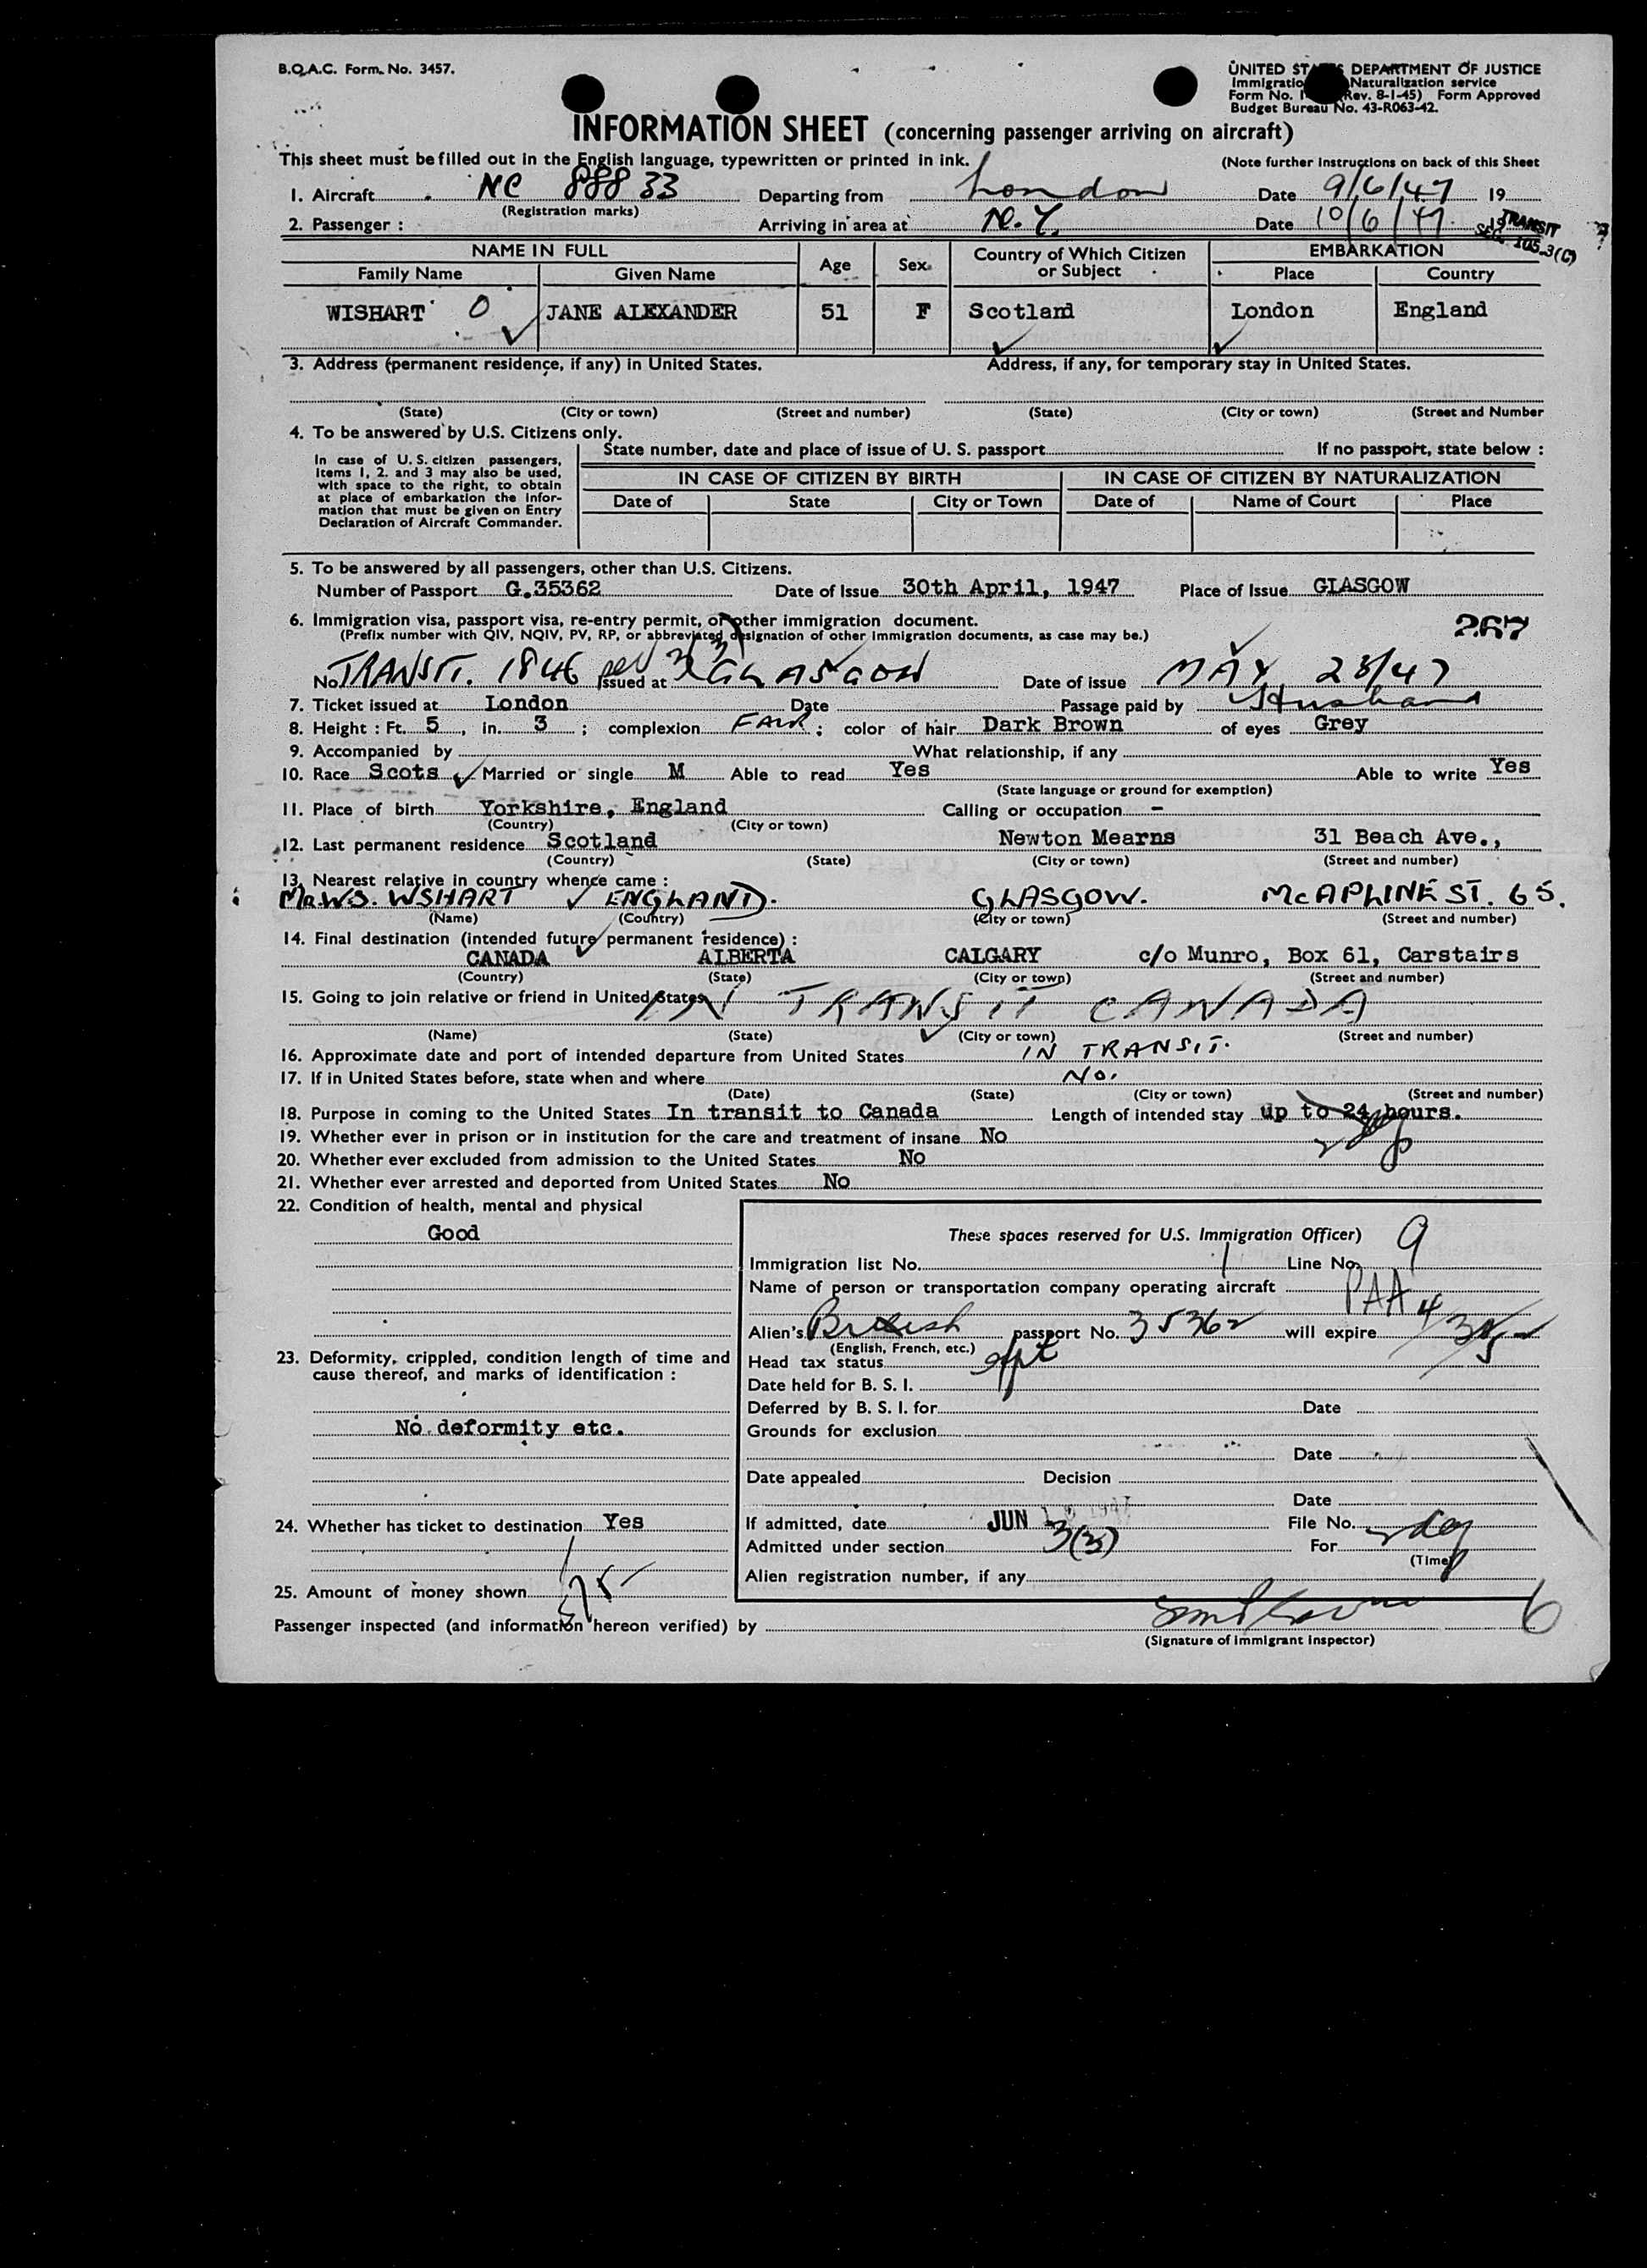 B.O.A.C. Form. No. 3457.
UNITED STATES DEPARTMENT OF JUSTICE
Immigration Naturalization service
Form No. (Rev. 8-1-45) Form Approved
Budget Bureau No. 43-R063-42.
INFORMATION SHEET (concerning passenger arriving on aircraft)
This sheet must be filled out in the English language, typewritten or printed in ink.
(Note further instructions on back of this Sheet
1. Aircraft NC 88833 Departing from London Date 9/6/47 19
(Registration marks)
2. Passenger : Arriving in area at N.Y. Date 10/6/47. 19
TRANSIT
SEC. 105.3(C)
NAME IN FULL Age Sex. Country of Which Citizen or Subject EMBARKATION
Family Name Given Name Place Country
WISHART O JANE ALEXANDER 51 F Scotland London England
3. Address (permanent residence, if any) in United States. Address, if any, for temporary stay in United States.
(State) (City or town) (Street and number) (State) (City or town) (Street and Number
4. To be answered by U.S. Citizens only.
In case of U.S. citizen passengers,
items 1, 2. and 3 may also be used,
with space to the right, to obtain
at place of embarkation the infor-
mation that must be given on Entry
Declaration of Aircraft Commander.
State number, date and place of issue of U. S. passport If no passport, state below :
IN CASE OF CITIZEN BY BIRTH IN CASE OF CITIZEN BY NATURALIZATION
Date of State City or Town Date of Name of Court Place
5. To be answered by all passengers, other than U.S. Citizens.
Number of Passport G.35362 Date of Issue 30th April, 1947 Place of Issue GLASGOW
6. Immigration visa, passport visa, re-entry permit, or other immigration document.
267
(Prefix number with QIV, NQIV, PV, RP, or abbreviated designation of other immigration documents, as case may be.)
No TRANSIT. 1846 Issued at 3(3) GLASGOW Date of issue MAY 23/47
7. Ticket issued at London Date Passage paid by Husband
8. Height : Ft. 5, in. 3 ; complexion FAIR ; color of hair Dark Brown of eyes Grey
9. Accompanied by What relationship, if any
10. Race Scots Married or single M Able to read Yes Able to write Yes
(State language or ground for exemption)
11. Place of birth Yorkshire, England Calling or occupation -
(Country) (City or town)
12. Last permanent residence Scotland Newton Mearns 31 Beach Ave.,
(Country) (State) (City or town) (Street and number)
13. Nearest relative in country whence came :
MR WS. WSHART ENGLAND. GLASGOW. McAPLINE ST. 65.
(Name) (Country) (City or town) (Street and number)
14. Final destination (intended future permanent residence) :
CANADA ALBERTA CALGARY c/o Munro, Box 61, Carstairs
(Country) (State) (City or town) (Street and number)
15. Going to join relative or friend in United States IN TRANSIT CANADA
(Name) (State) (City or town) (Street and number)
16. Approximate date and port of intended departure from United States IN TRANSIT.
17. If in United States before, state when and where No.
(Date) (State) (City or town) (Street and number)
18. Purpose in coming to the United States In transit to Canada Length of intended stay up to 24 hours.
19. Whether ever in prison or in institution for the care and treatment of insane No
20. Whether ever excluded from admission to the United States No
21. Whether ever arrested and deported from United States No
22. Condition of health, mental and physical
Good
These spaces reserved for U.S. Immigration Officer)
Immigration list No. 1 Line No. 9
Name of person or transportation company operating aircraft PAA
Alien's British passport No. 35362 will expire 4/30/52
(English, French, etc.)
23. Deformity, crippled, condition length of time and
cause thereof, and marks of identification :
No deformity etc.
Head tax status
Date held for B. S. I.
Deferred by B. S. I. for Date
Grounds for exclusion
Date
Date appealed Decision
Date
24. Whether has ticket to destination Yes
If admitted, date JUN 1947 File No.
Admitted under section 3(3) For 2 day
(Time)
Alien registration number, if any
25. Amount of money shown 75
Passenger inspected (and information hereon verified) by
6
(Signature of Immigrant Inspector)